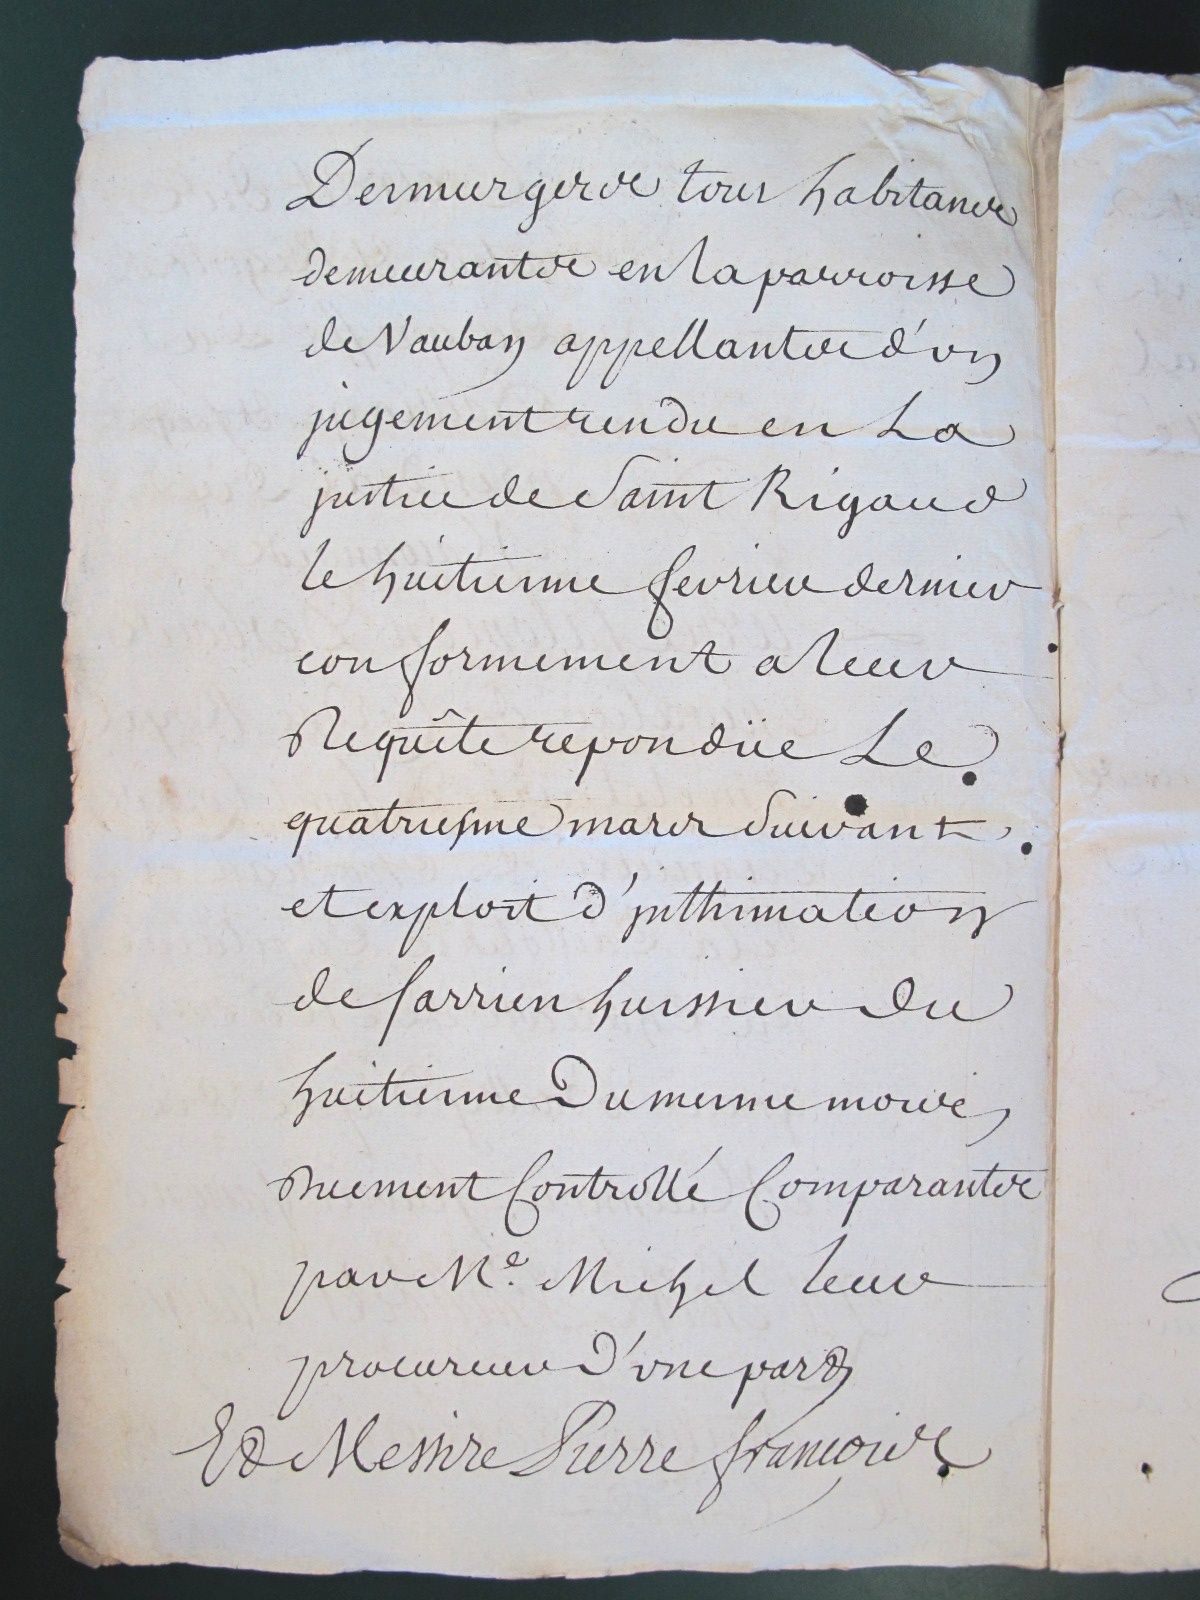 Desmurgers tous habitans
demeurants en la parroisse
de Vauban appellants d'un
jugement rendu en La
justice de Saint Rigaud
le huitieme fevrier dernier
conformement a leur
Requête repondüe Le
quatriesme mars Suivant,
et exploit d'jnthimation
de sarrien huissier du
huitieme Du mesme mois,
duement Controllé Comparants
par Me. Michel leur
procureur d'une part
Et Messire Pierre françois